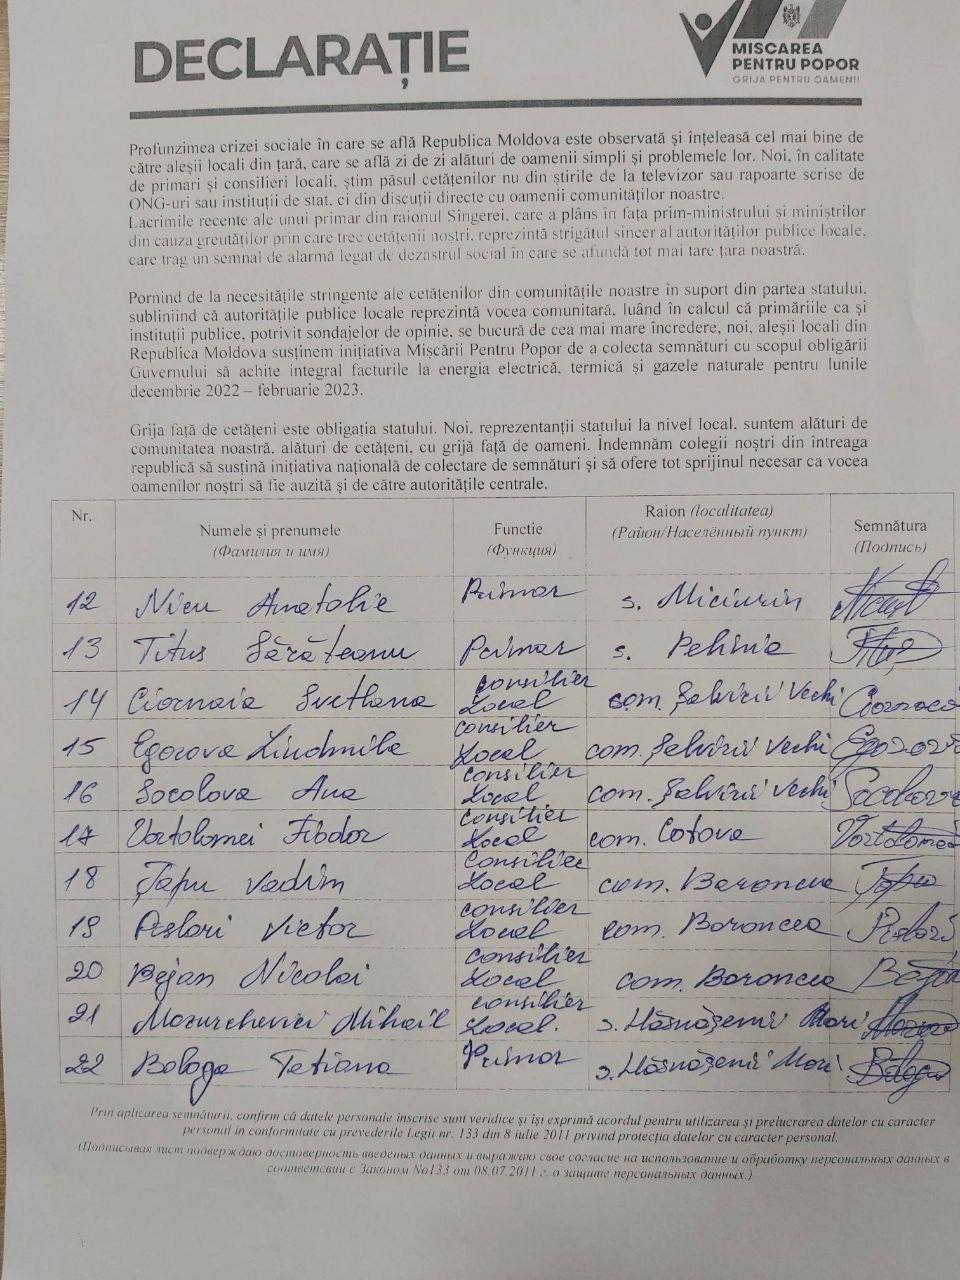 DECLARAȚIE
MISCAREA
PENTRU POPOR
GRIJA PENTRU OAMENI!
Profunzimea crizei sociale în care se află Republica Moldova este observată și înțeleasă cel mai bine de
către aleșii locali din țară, care se află zi de zi alături de oamenii simpli și problemele lor. Noi, în calitate
de primari și consilieri locali, știm păsul cetățenilor nu din știrile de la televizor sau rapoarte scrise de
ONG-uri sau instituții de stat, ci din discuții directe cu oamenii comunităților noastre.
Lacrimile recente ale unui primar din raionul Sîngerei, care a plâns în fața prim-ministrului și miniștrilor
din cauza greutăților prin care trec cetățenii noștri, reprezintă strigătul sincer al autorităților publice locale,
care trag un semnal de alarmă legat de dezastrul social în care se afundă tot mai tare țara noastră.
Pornind de la necesitățile stringente ale cetățenilor din comunitățile noastre în suport din partea statului,
subliniind că autoritățile publice locale reprezintă vocea comunitară, luând în calcul că primăriile ca și
instituții publice, potrivit sondajelor de opinie, se bucură de cea mai mare încredere, noi, aleșii locali din
Republica Moldova susținem inițiativa Mișcării Pentru Popor de a colecta semnături cu scopul obligării
Guvernului să achite integral facturile la energia electrică, termică și gazele naturale pentru lunile
decembrie 2022 – februarie 2023.
Grija față de cetățeni este obligația statului. Noi, reprezentanții statului la nivel local, suntem alături de
comunitatea noastră, alături de cetățeni, cu grijă față de oameni. Îndemnăm colegii noștri din întreaga
republică să susțină inițiativa națională de colectare de semnături și să ofere tot sprijinul necesar ca vocea
oamenilor noștri să fie auzită și de către autoritățile centrale.
Nr. Numele și prenumele Functie Raion (localitatea) Semnătura
(Фамилия и имя) (Функция) (Район/Населённый пункт) (Подпись)
12 Nicu Anatolie Primar s. Miciurin
13 Titus Sărăteanu Primar s. Pelinia
14 Ciornaia Svetlana consilier local com. Șalvirii Vechi
15 Egorova Liudmila consilier local com. Șalvirii Vechi
16 Socolova Ana consilier local com. Șalvirii Vechi
17 Vortolomei Fiodor consilier local com. Cotova
18 Țapu Vadim consilier local com. Baroncea
19 Pislari Victor consilier local com. Baroncea
20 Bejan Nicolai consilier local com. Baroncea
21 Mazurchevici Mihail consilier local. s. Hăsnășenii Mari
22 Bologa Tetiana Primar s. Hăsnășenii Mari Bologa
Prin aplicarea semnăturii, confirm că datele personale înscrise sunt veridice și își exprimă acordul pentru utilizarea și prelucrarea datelor cu caracter
personal in conformitate cu prevederile Legii nr. 133 din 8 iulie 2011 privind protecția datelor cu caracter personal.
(Подписывая лист подтверждаю достоверность введеных данных и выражаю свое согласие на использование и обработку персональных данных в
соответсвии с Законом No133 от 08.07.2011 г. о защите персональных данных.)